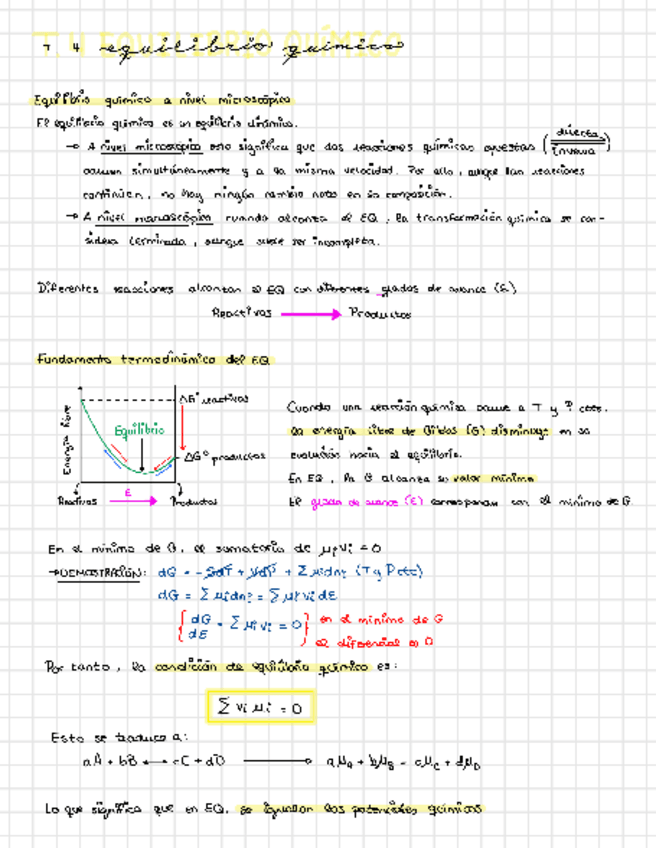 T. 4 equilibrio químico
Equilibrio químico a nivel microscópico
El equilibrio químico es un equilibrio dinámico.
→ A nivel microscópico esto significa que dos reacciones químicas opuestas (directa / inversa)
ocurren simultáneamente y a la misma velocidad. Por ello, aunque las reacciones
continúen, no hay ningún cambio neto en su composición.
→ A nivel macroscópico cuando alcanza el EQ, la transformación química se con-
sidera terminada, aunque suele ser incompleta.
Diferentes reacciones alcanzan el EQ con diferentes grados de avance (ξ)
Reactivos → Productos
Fundamento termodinámico del EQ
Energía libre
ΔG° reactivos
Equilibrio
ΔG° productos
Reactivos ξ → Productos
Cuando una reacción química ocurre a T y P ctes.
la energía libre de Gibbs (G) disminuye en su
evolución hacia el equilibrio.
En EQ, la G alcanza su valor mínimo
El grado de avance (ξ) corresponde con el mínimo de G.
En el mínimo de G, el sumatorio de μiνi = 0
→ DEMOSTRACIÓN: dG = -SdT + VdP + Σ μidni (T y P ctes)
dG = Σ μidni = Σ μiνi dξ
{dG/dξ = Σ μiνi = 0} en el mínimo de G
el diferencial es 0
Por tanto, la condición de equilibrio químico es:
Σ νi μi = 0
Esto se traduce a:
aA + bB ⟷ cC + dD ⟶ aμA + bμB = cμC + dμD
Lo que significa que en EQ, se igualan los potenciales químicos